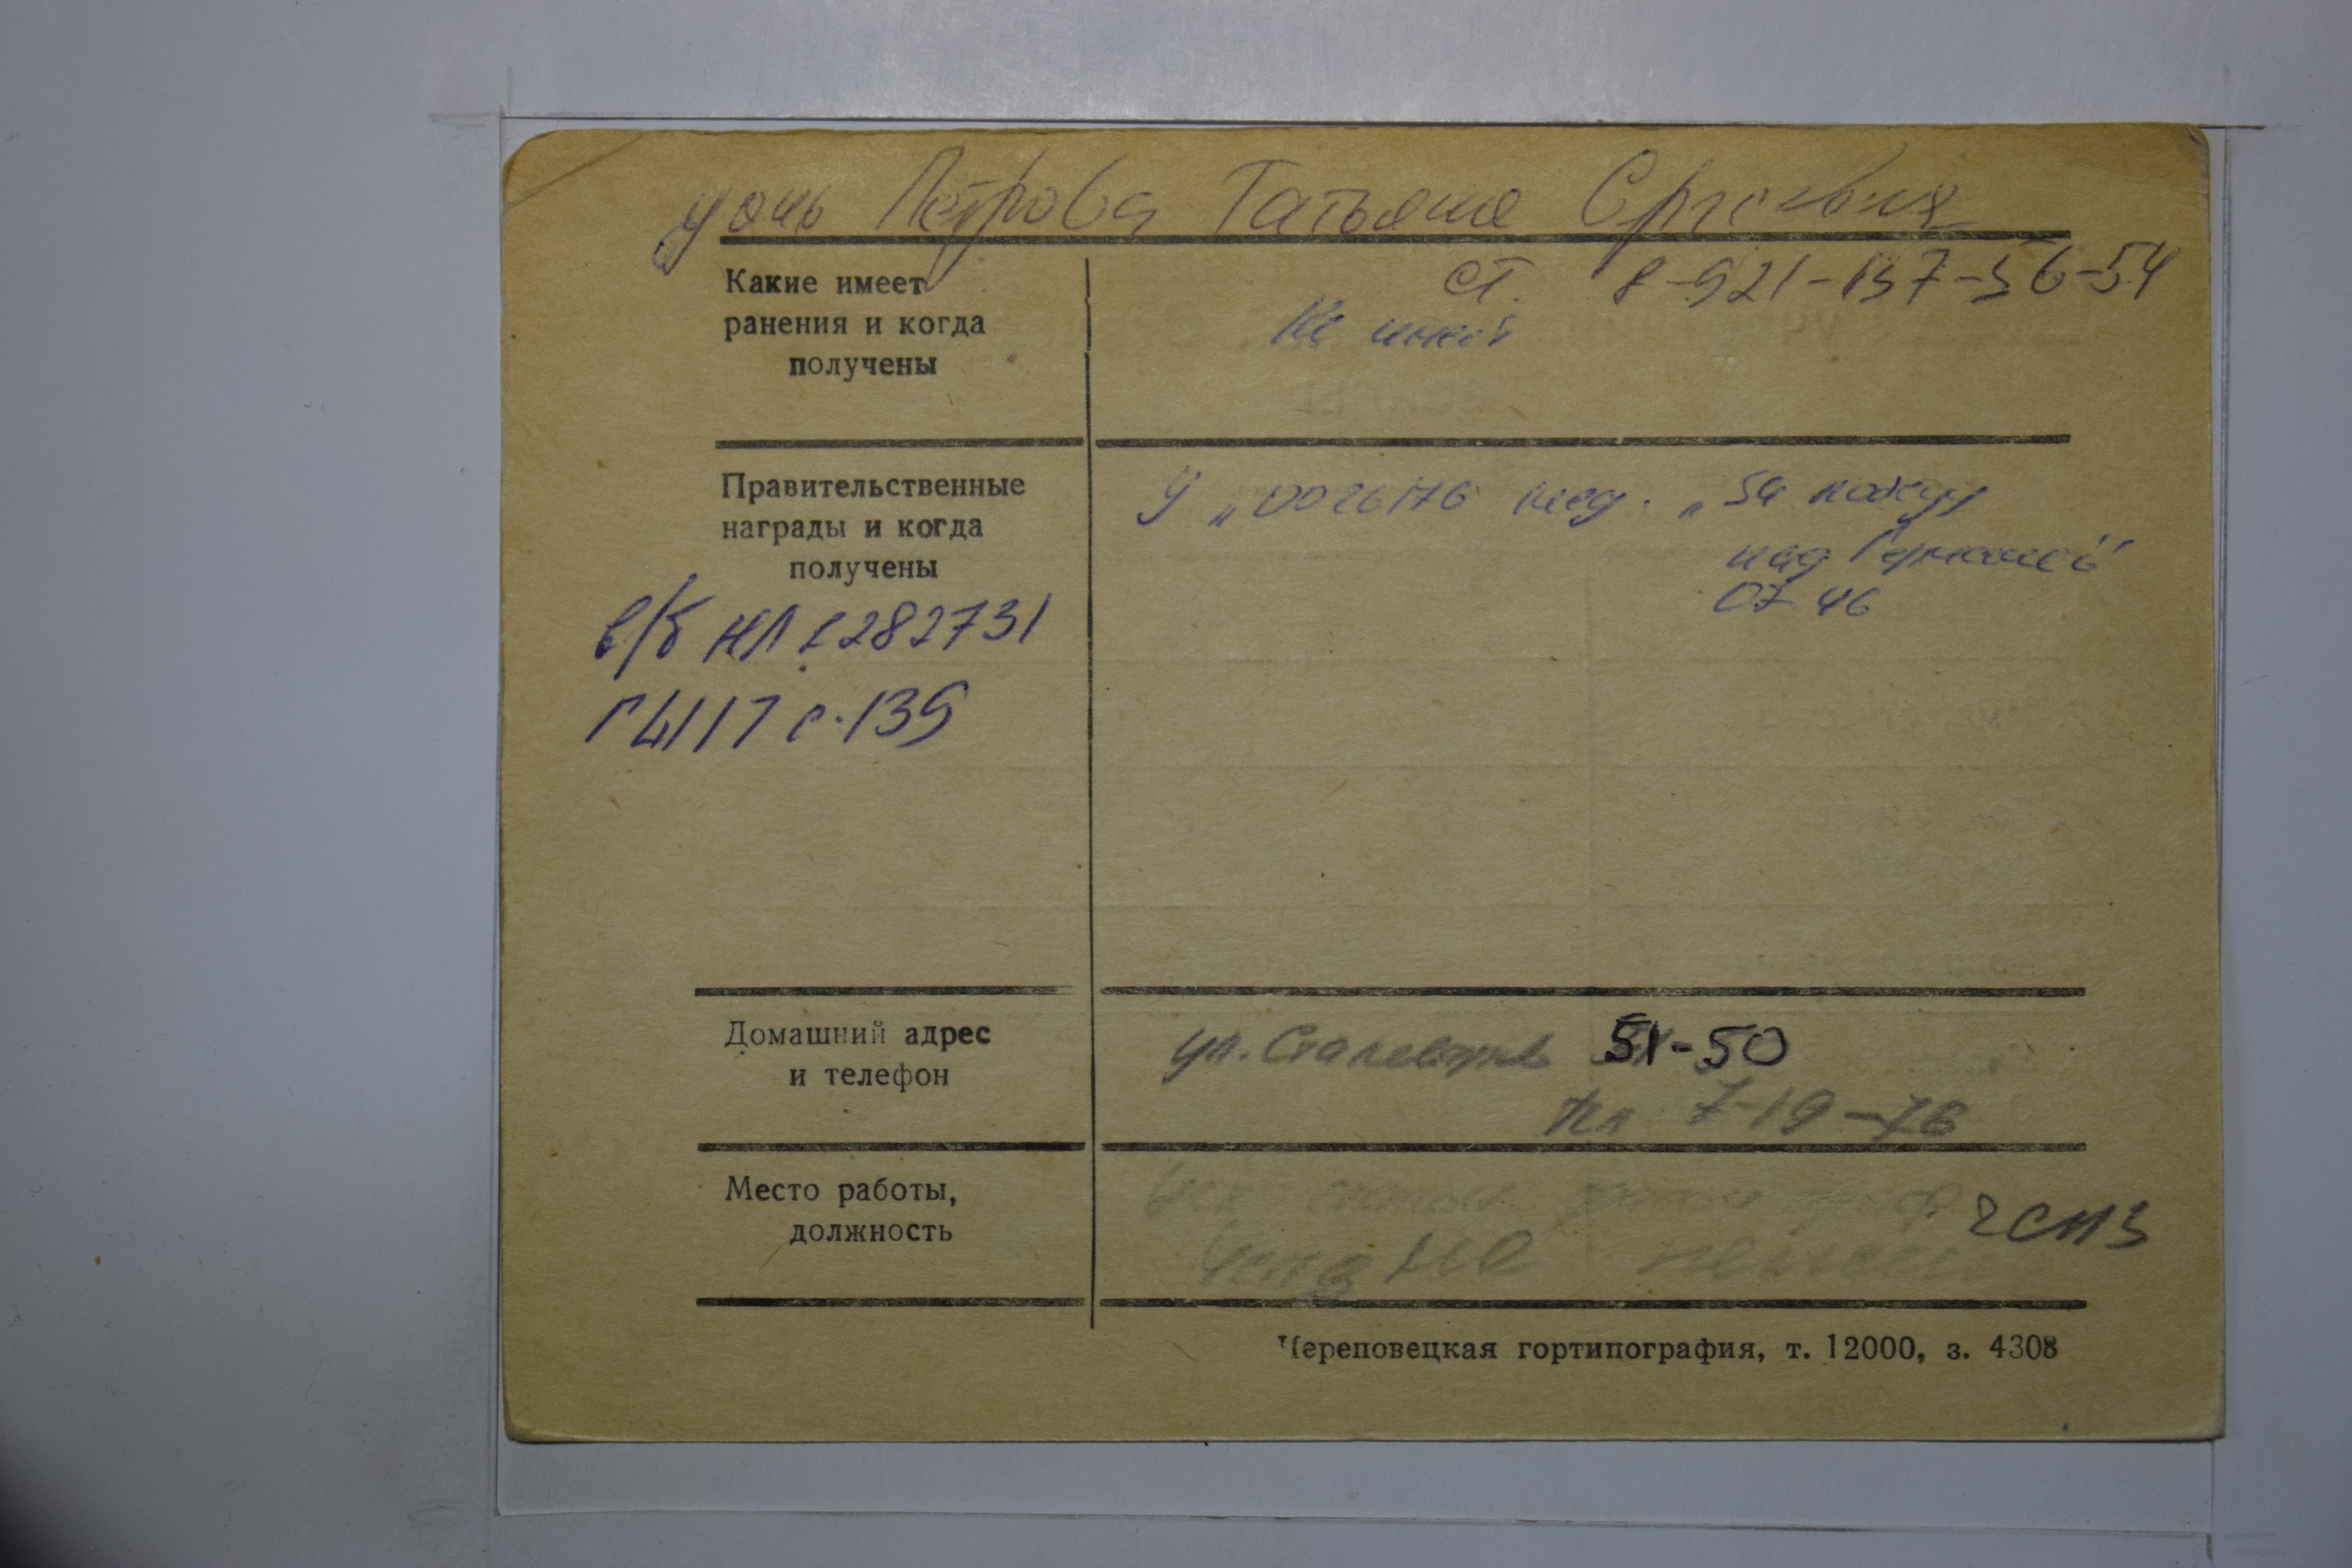 дочь Петрова Татьяна Сергеевна
ст. 8-921-137-56-54
Какие имеет
ранения и когда
получены
Не имеет
Правительственные
награды и когда
получены
У № 0026176 мед. „За победу
над Германией"
07 46
в/б НЛ 1282731
Г 4117 с. 139
Домашний адрес
и телефон
ул. Сталеваров 51-50
тел 7-19-76
Место работы,
должность
ЧСПЗ
Череповецкая гортипография, т. 12000, з. 4308